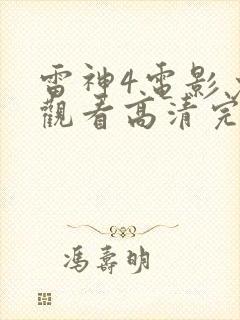 雷神4電影
觀看高清完
馮壽明